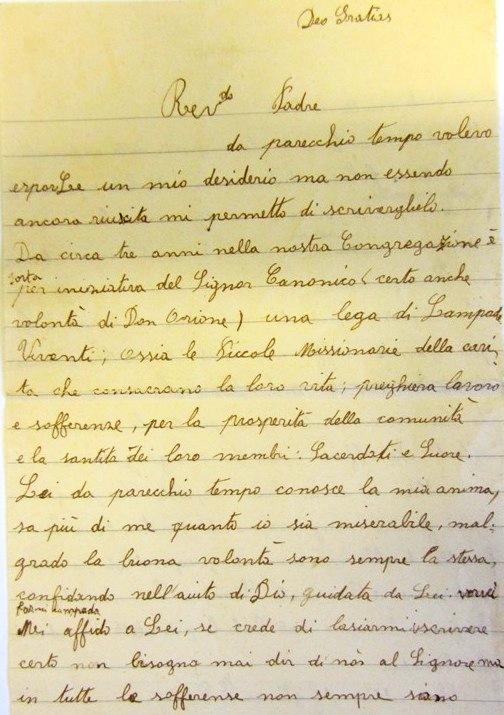 Deo Gratias
Rev.do Padre
da parecchio tempo volevo
esporLe un mio desiderio ma non essendo
ancora riuscita mi permetto di scriverglielo.
Da circa tre anni nella nostra Congregazione è
sorta
per iniziativa del Signor Canonico (certo anche
volontà di Don Orione) una lega di Lampade
Viventi; ossia le Piccole Missionarie della cari-
tà che consacrano la loro vita; preghiera lavoro
e sofferenze, per la prosperità della comunità
e la santità dei loro membri: Sacerdoti e Suore.
Lei da parecchio tempo conosce la mia anima,
sa più di me quanto io sia miserabile, mal-
grado la buona volontà sono sempre la stessa,
confidando nell'aiuto di Dio, guidata da Lei vorrei
farmi lampada
Mei affido a Lei, se crede di lasiarmi iscrivere
certo non bisogna mai dir di nò al Signore ma
in tutte le sofferense non sempre siano